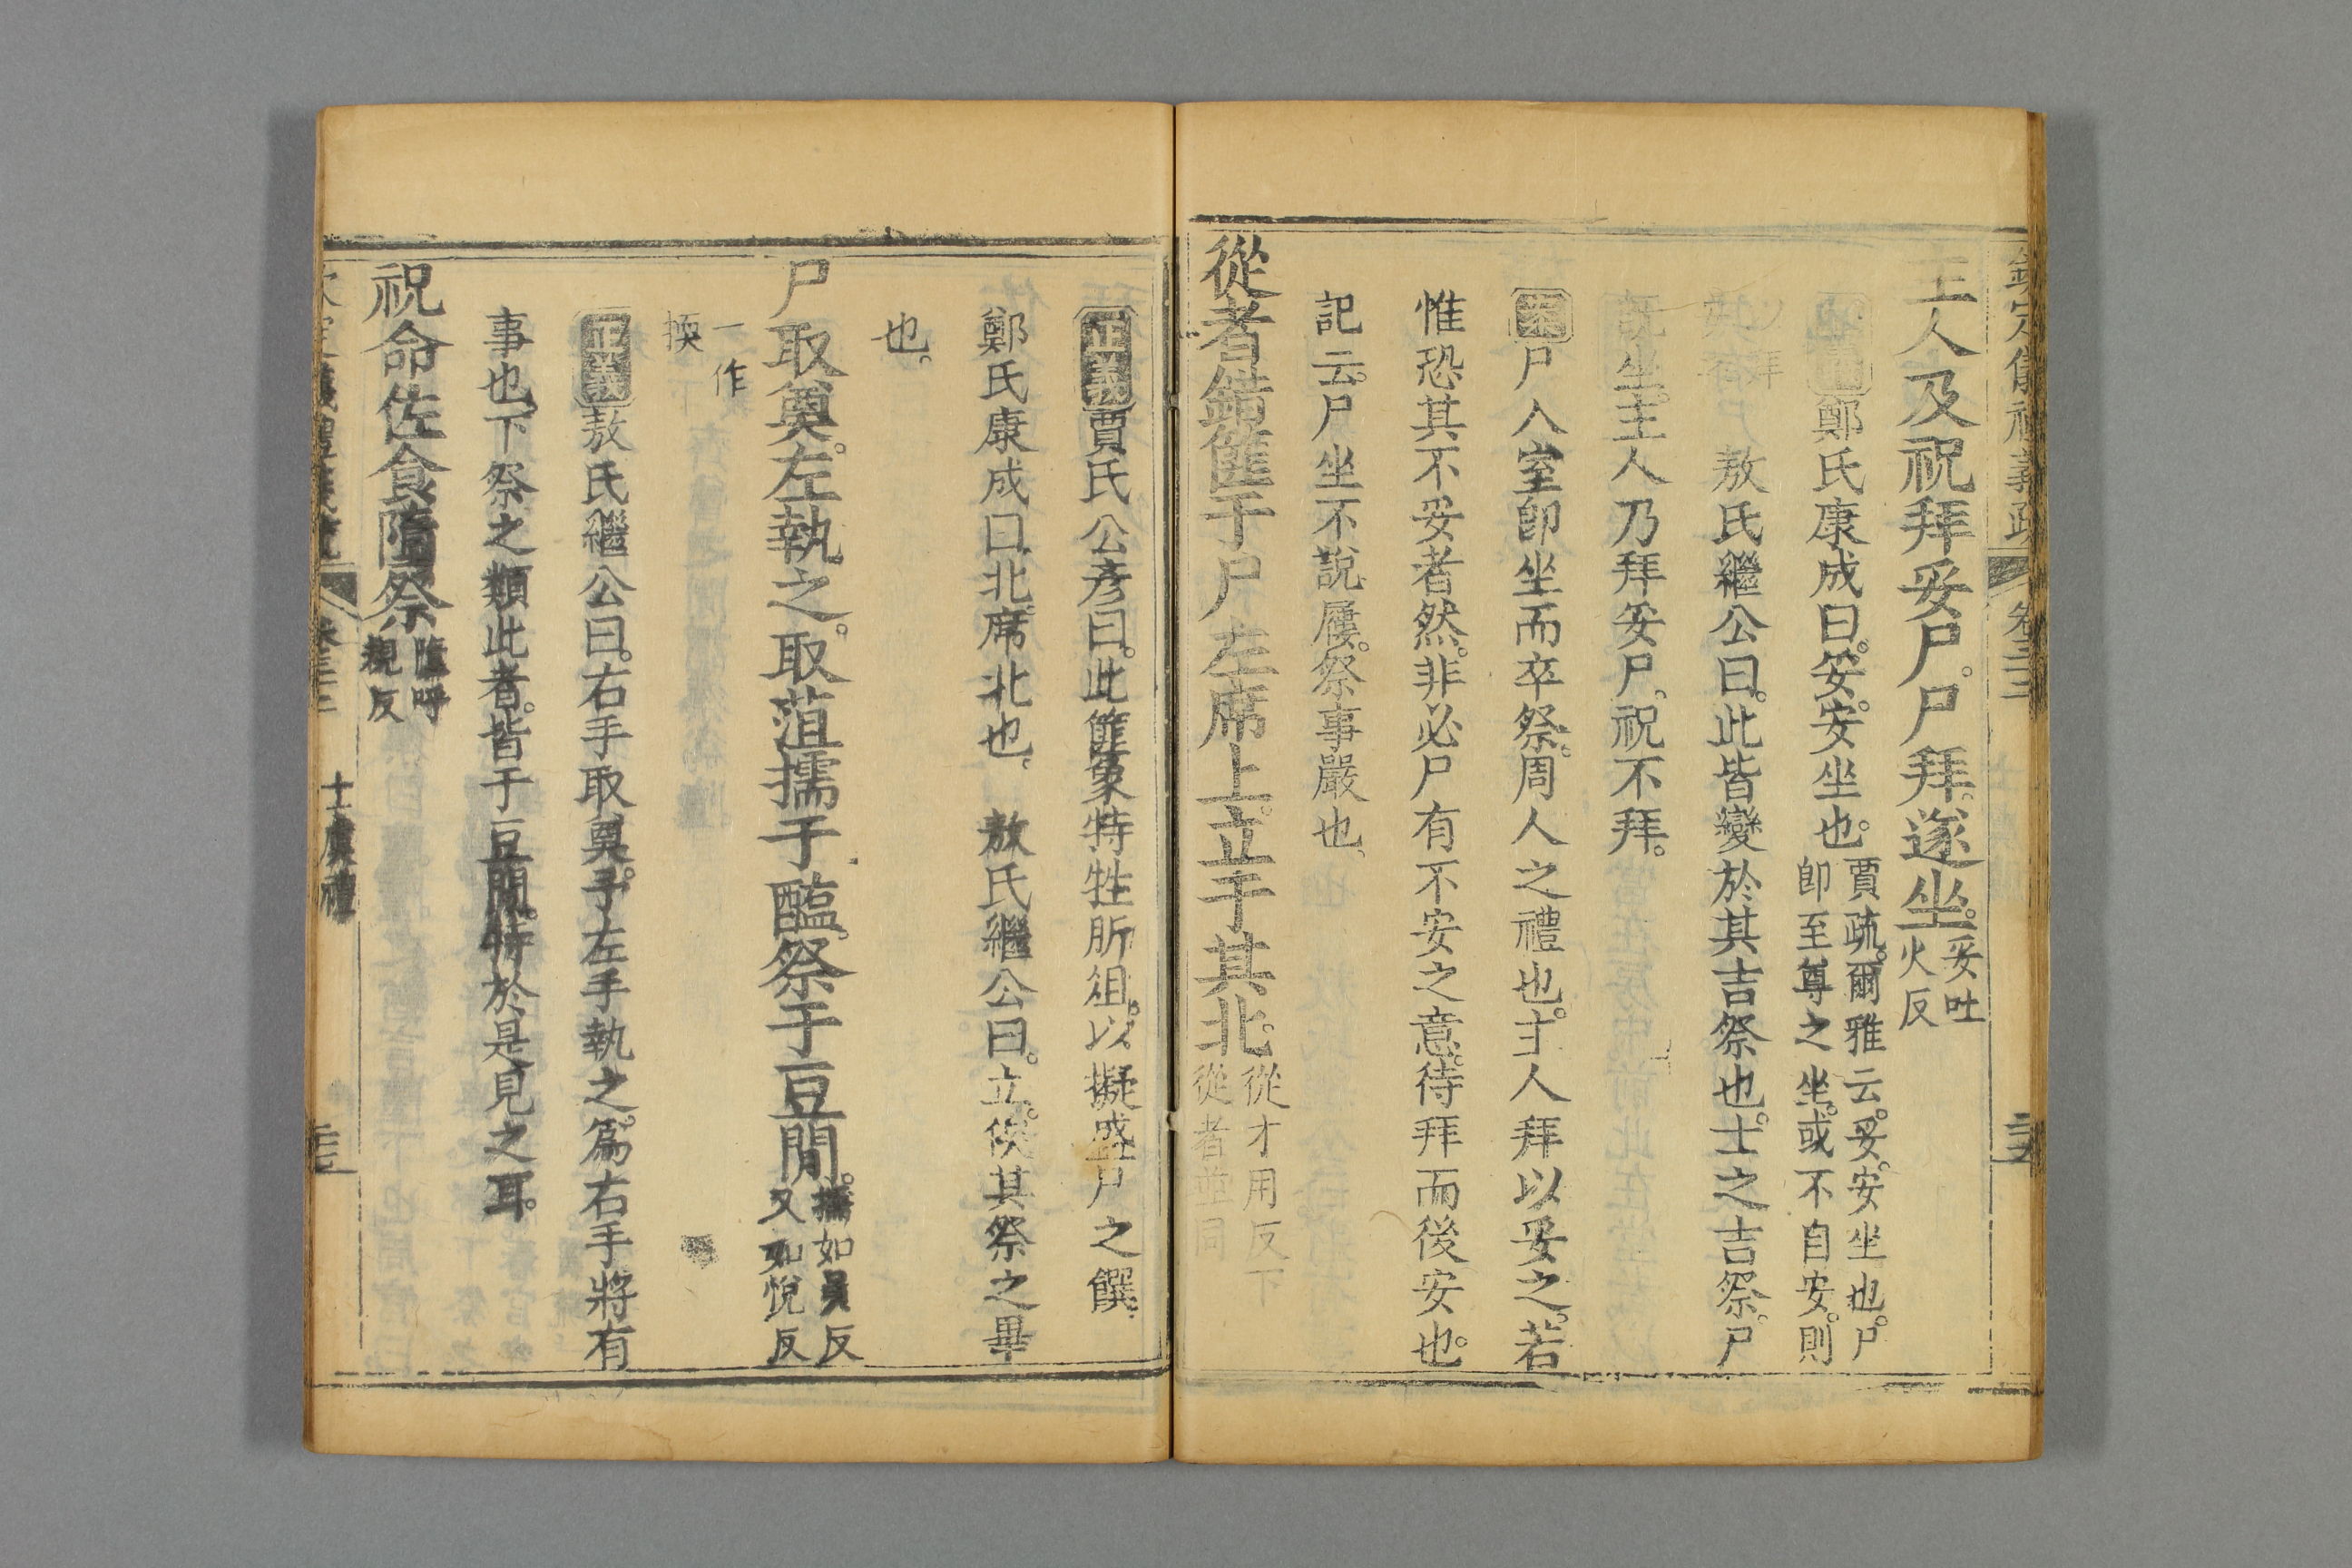 欽定儀禮義疏 卷三十二
主人及祝拜妥尸。尸拜。遂坐。妥吐
火反
鄭氏康成曰。妥。安坐也。賈疏。爾雅云。妥。安坐也。尸
卽至尊之坐。或不自安。則
以拜
敖氏繼公曰。此皆變於其吉祭也。士之吉祭。尸
坐。主人乃拜妥尸。祝不拜。
案尸入室卽坐而卒祭。周人之禮也。主人拜以妥之。若
惟恐其不妥者然。非必尸有不安之意。待拜而後安也。
記云。尸坐不說屨。祭事嚴也。
從者錯篚于尸左席上。立于其北。從才用反下
從者並同
正義賈氏公彥曰。此篚象特牲肵俎。以擬盛尸之饌。
鄭氏康成曰。北。席北也。 敖氏繼公曰。立。俟其祭之畢
也。
尸取奠。左執之。取菹擩于醢。祭于豆閒。擩如員反
又如悅反
一作
換
正義敖氏繼公曰。右手取奠。予左手執之。爲右手將有
事也。下祭之類此者。皆于豆閒。特於是見之耳。
祝命佐食隋祭 隋呼
規反
欽定儀禮義疏 卷三十二 士虞禮